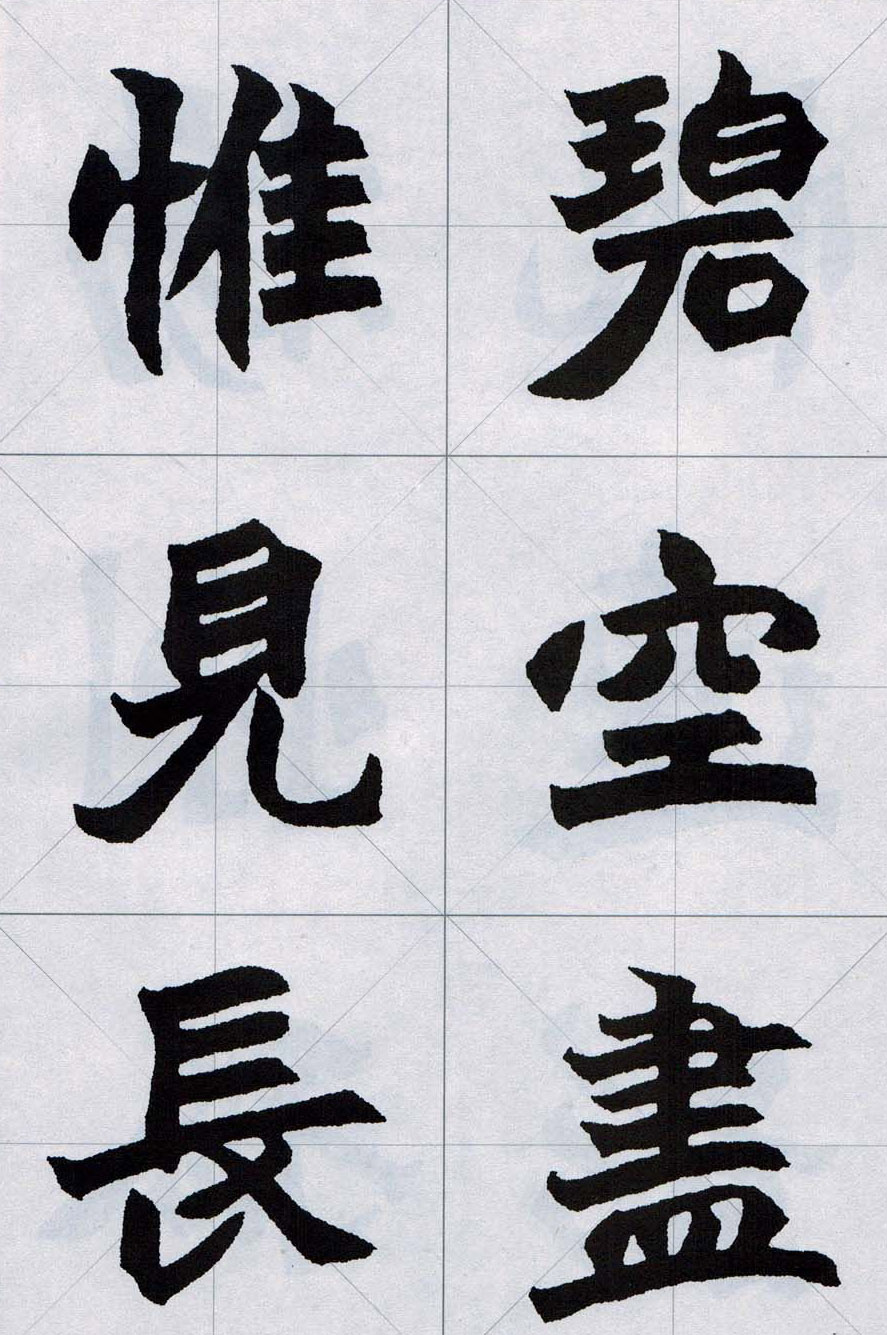 碧空盡
惟見長